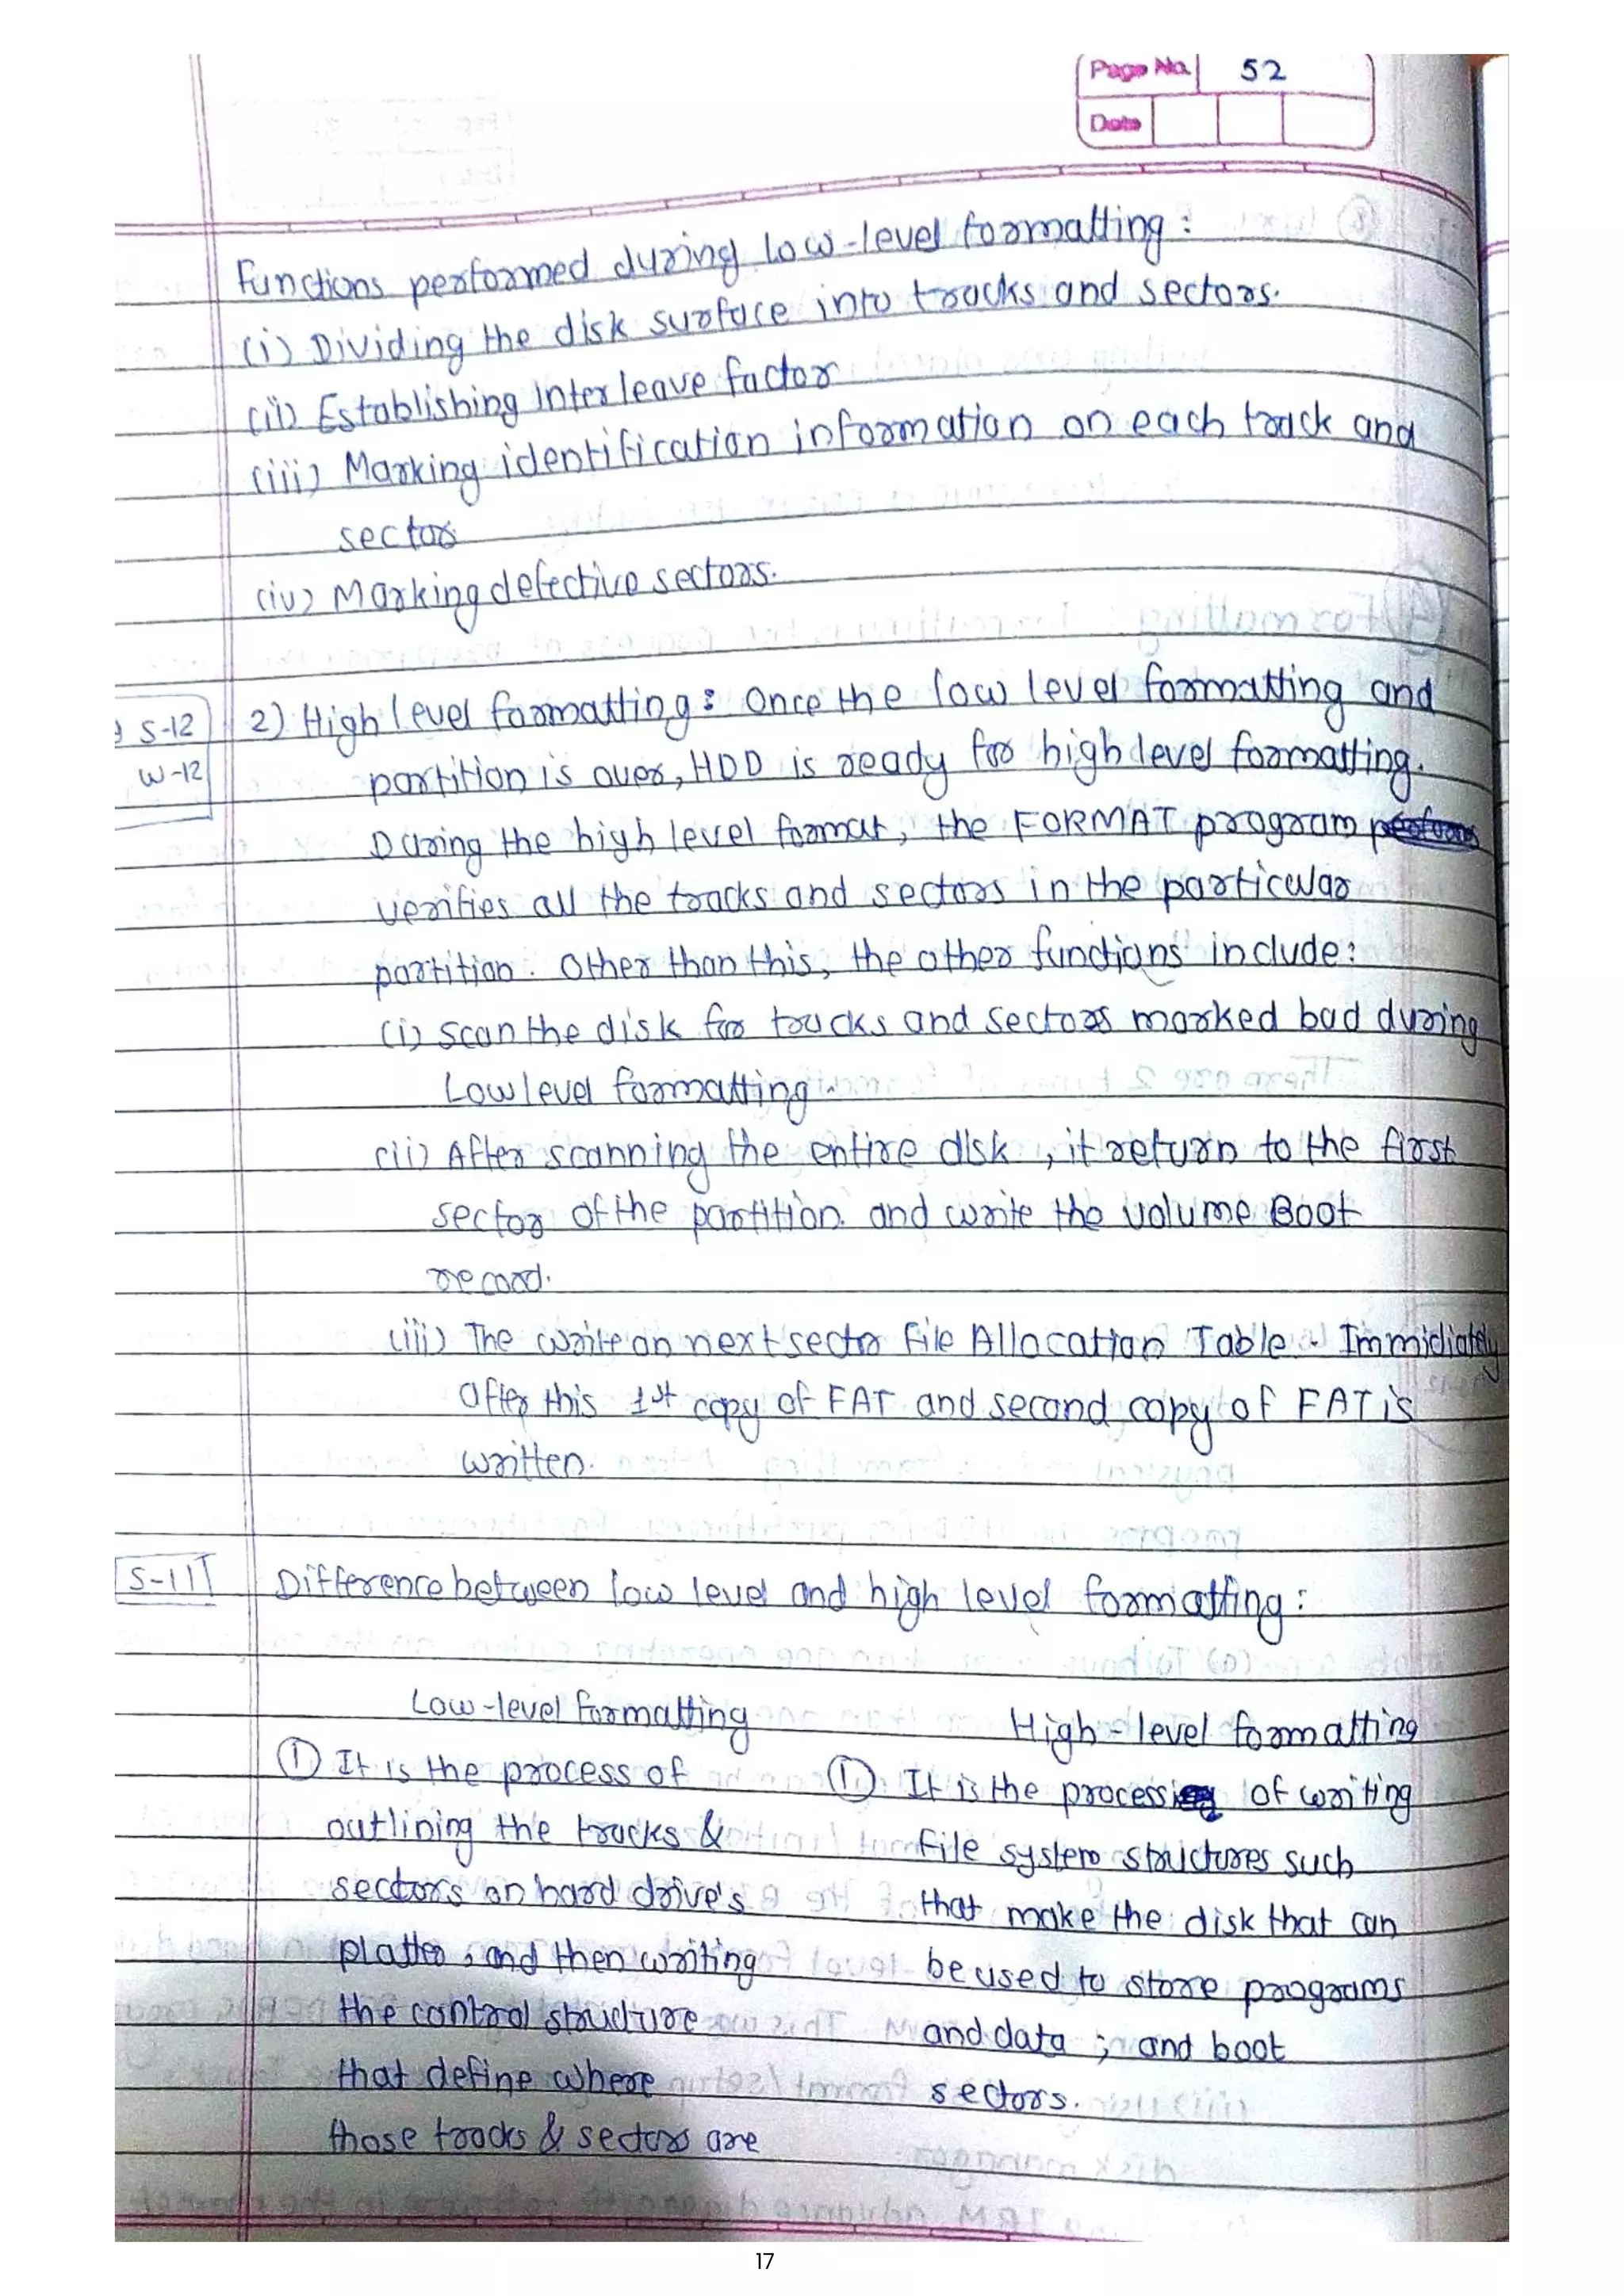 Page No. 52
Date
Functions performed during low-level formatting :
(i) Dividing the disk surface into tracks and sectors.
(ii) Establishing Interleave factor
(iii) Marking identification information on each track and
sector
(iv) Marking defective sectors.
S-12
W-12
2) High level formatting : Once the low level formatting and
partition is over, HDD is ready for high level formatting.
During the high level format, the FORMAT program
verifies all the tracks and sectors in the particular
partition. Other than this, the other functions include :
(i) Scan the disk for tracks and sectors marked bad during
Low level formatting.
(ii) After scanning the entire disk, it return to the first
sector of the partition and write the volume Boot
record.
(iii) The write on next sector File Allocation Table. Immidiately
after this 1st copy of FAT and second copy of FAT is
written.
S-11
Difference between low level and high level formatting :
Low-level formatting
High-level formatting
① It is the process of
outlining the tracks &
sectors on hard drive's
platter, and then writing
the control structure
that define where
those tracks & sectors are
① It is the process of writing
file system structures such
that make the disk that can
be used to store programs
and data ; and boot
sectors.
17